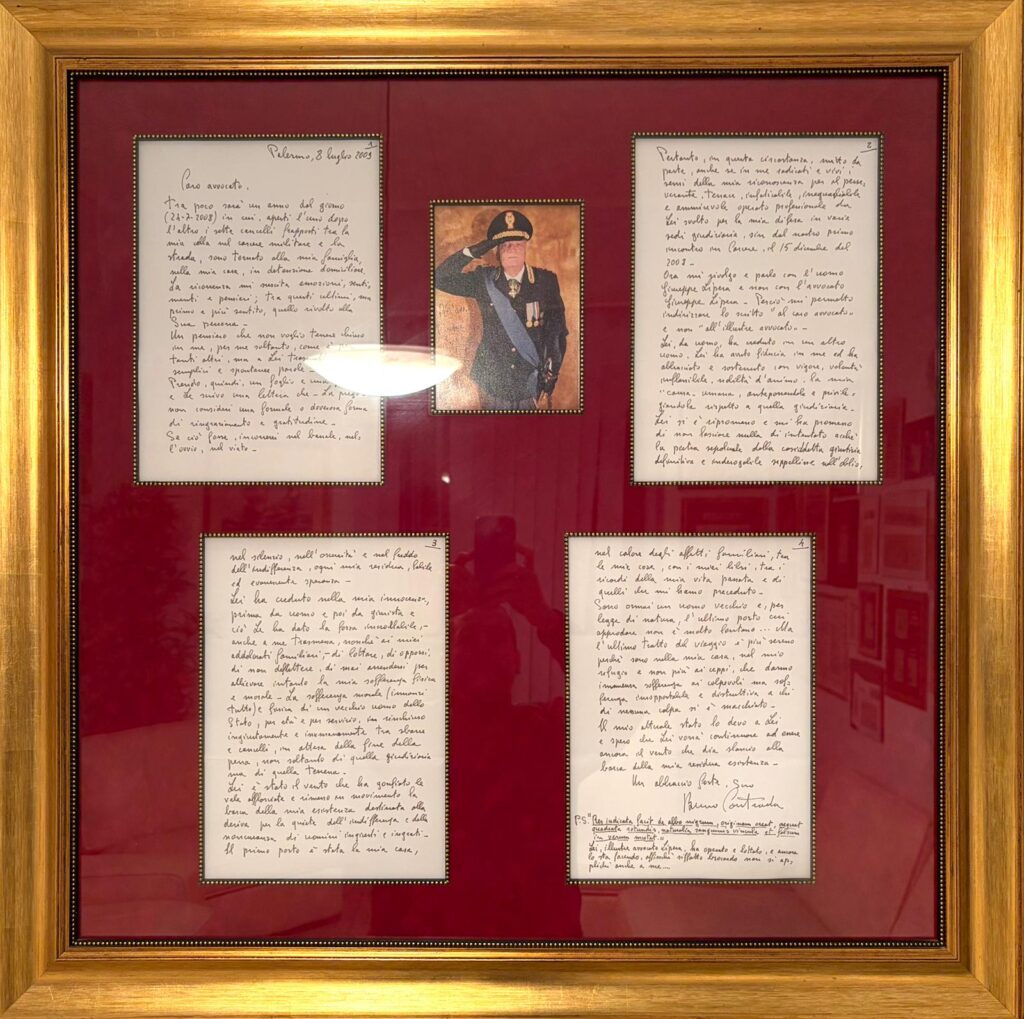 1
Palermo, 8 luglio 2009
Caro avvocato,
tra poco sarà un anno dal giorno
(24-7-2008) in cui, aperti l'uno dopo
l'altro i sette cancelli frapposti tra la
mia cella nel carcere militare e la
strada, sono tornato alla mia famiglia,
nella mia casa, in detenzione domiciliare.
La ricorrenza mi suscita emozioni, senti-
menti e pensieri; tra questi ultimi, ma
primo e più sentito, quello rivolto alla
Sua persona -
Un pensiero che non voglio tenere chiuso
in me, per me soltanto, come
tanti altri, ma a Lei
semplici e spontanee parole -
Prendo, quindi, un foglio e
e Le scrivo una lettera che - La prego -
non consideri una formale o doverosa forma
di ringraziamento e gratitudine -
Se ciò fosse, incorrerei nel banale, nel-
l'ovvio, nel vieto -
2
Pertanto, in questa circostanza, metto da
parte, anche se in me radicati e vivi i
sensi della mia riconoscenza per il perse-
verante, tenace, infaticabile, ineguagliabile
e ammirevole operato professionale da
Lei svolto per la mia difesa in varie
sedi giudiziarie, sin dal nostro primo
incontro in Carcere, il 15 dicembre del
Ora mi rivolgo e parlo con l'uomo
Giuseppe Lipera e non con l'avvocato
Giuseppe Lipera - Perciò mi permetto
indirizzare lo scritto "al caro avvocato"
e non "all'illustre avvocato" -
Lei, da uomo, ha creduto in un altro
uomo. Lei ha avuto fiducia in me ed ha
abbracciato e sostenuto con vigore, volontà
inflessibile, nobiltà d'animo, la mia
"causa" umana, anteponendola e privile-
giandola rispetto a quella giudiziaria -
Lei si è ripromesso e mi ha promesso
di non lasciare nulla di intentato acché
la pietra sepolcrale della cosiddetta giustizia
definitiva e inderogabile seppellisse nell'oblio,
3
nel silenzio, nell'oscurità e nel freddo
dell'indifferenza, ogni mia residua, labile
ed evanescente speranza -
Lei ha creduto nella mia innocenza,
prima da uomo e poi da giurista e
ciò Le ha dato la forza incrollabile, -
anche a me trasmessa, nonché ai miei
addolorati familiari, - di lottare, di opporsi,
di non deflettere, di mai arrendersi per
alleviare intanto la mia sofferenza fisica
e morale - La sofferenza morale (innanzi
tutto) e fisica di un vecchio uomo dello
Stato, per età e per servizio, in rinchiuso
ingiustamente e inumanamente tra sbarre
e cancelli, in attesa della fine della
pena, non soltanto di quella giudiziaria
ma di quella terrena -
Lei è stato il vento che ha gonfiato le
vele afflosciate e rimesso in movimento la
barca della mia esistenza destinata alla
deriva per la quiete dell'indifferenza e della
noncuranza di uomini ingiusti e ingrati -
Il primo porto è stata la mia casa,
4
nel calore degli affetti familiari, tra
le mie cose, con i miei libri, tra i
ricordi della mia vita passata e di
quelli che mi hanno preceduto -
Sono ormai un uomo vecchio e, per
legge di natura, l'ultimo porto cui
approdare non è molto lontano ... Ma
l'ultimo tratto del viaggio è più sereno
perché sono nella mia casa, nel mio
rifugio e non più ai ceppi, che danno
immensa sofferenza ai colpevoli ma sof-
ferenza insopportabile e distruttiva a chi
di nessuna colpa si è macchiato -
Il mio attuale stato lo devo a Lei
e spero che Lei vorrà continuare ad essere
ancora il vento che dia slancio alla
barca della mia residua esistenza -
Un abbraccio forte, Suo
Bruno Contrada
P.S. "Res iudicata facit de albo nigrum, originem creat, aequat
quadrata rotundis, naturalia sanguinis vincula et falsum
in verum mutat" -
Lei, illustre avvocato Lipera, ha operato e lottato, e ancora
lo sta facendo, affinché siffatto brocardo non si ap-
plichi anche a me ...